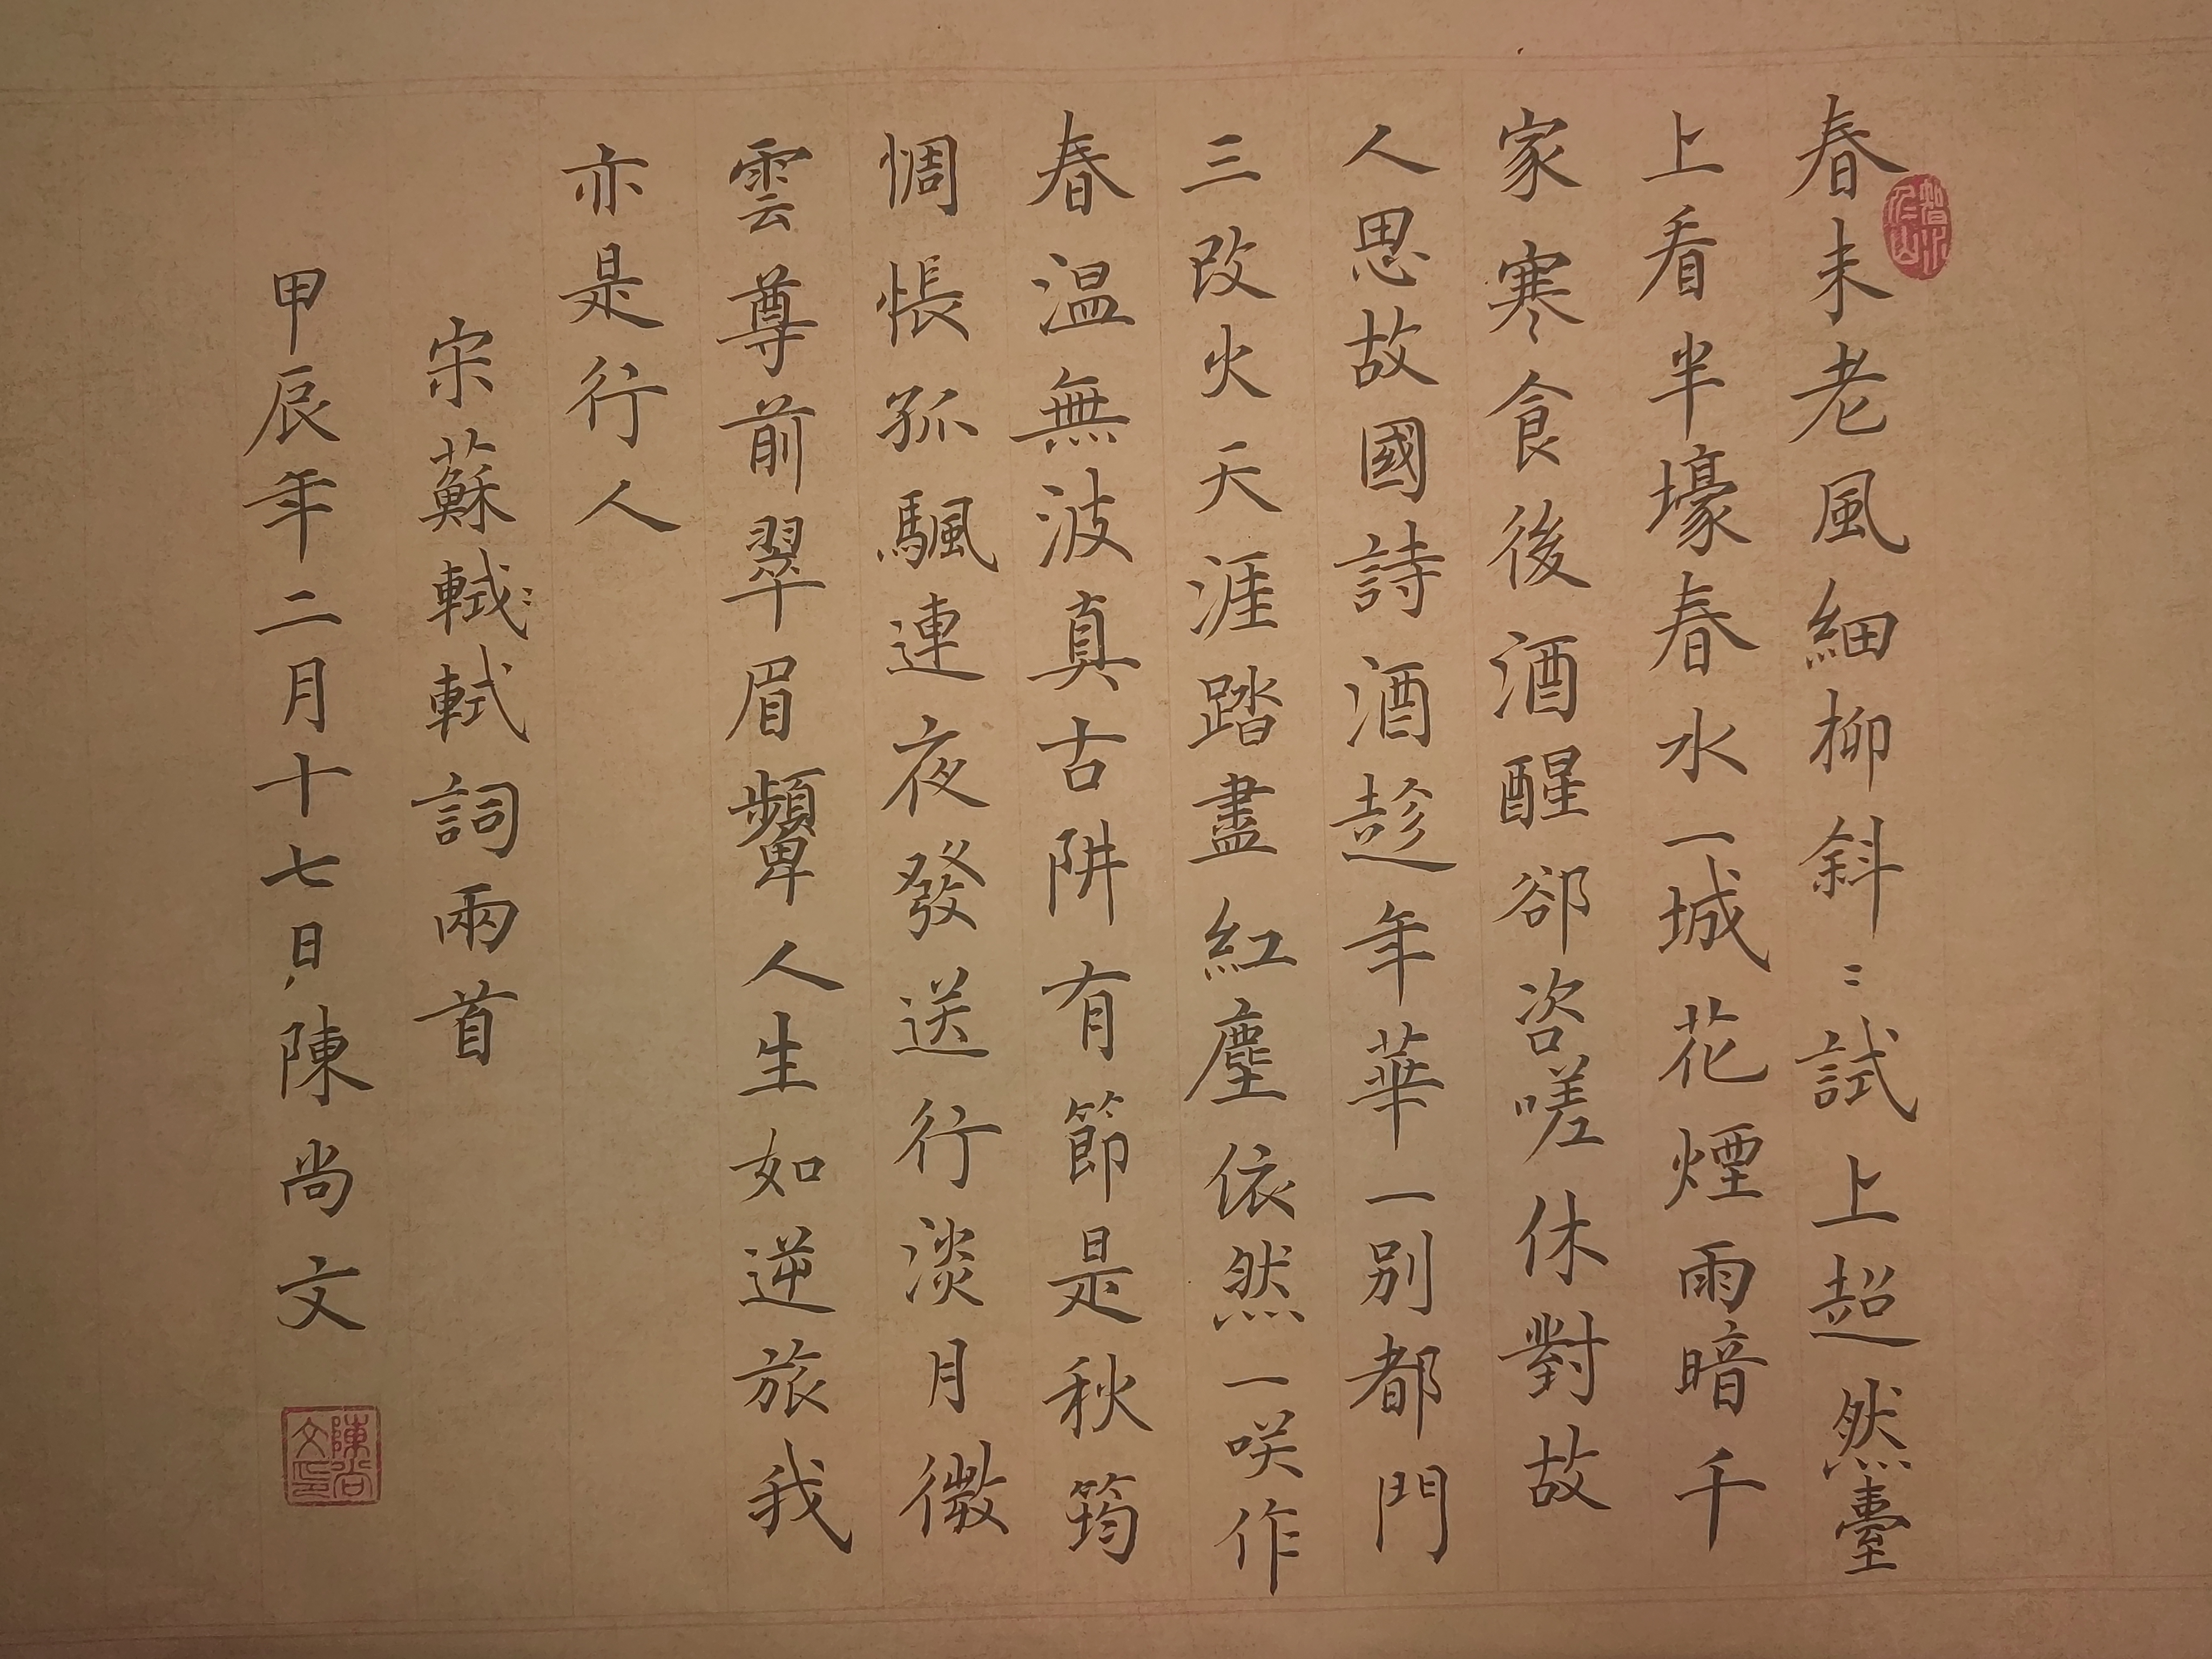 春未老風細柳斜〻試上超然臺
上看半壕春水一城花煙雨暗千
家寒食後酒醒卻咨嗟休對故
人思故國詩酒趁年華一別都門
三改火天涯踏盡紅塵依然一咲作
春温無波真古阱有節是秋筠
惆悵孤颿連夜發送行淡月微
雲尊前翠眉顰人生如逆旅我
亦是行人
宋蘇軾〻軾詞兩首
甲辰年二月十七日陳尚文
陳尚文印